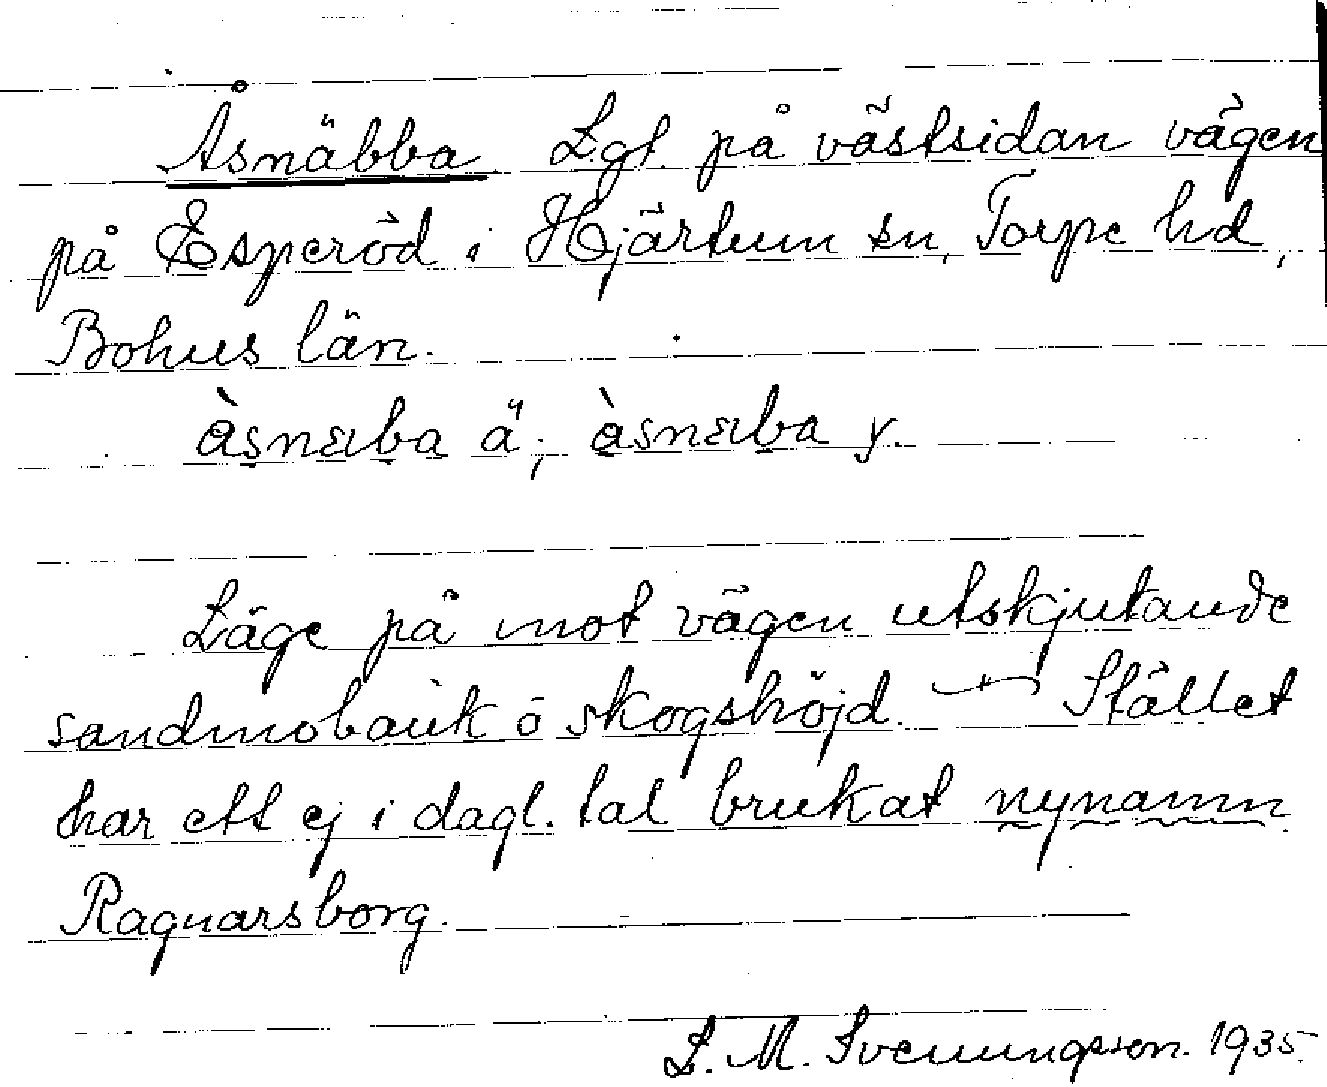 Åsnäbba Lgt. på västsidan vägen
på Esperöd i Hjärtum sn, Torpe hd,
Bohus län.
àsnæba ä; àsnæba y.
Läge på mot vägen utskjutande
sandmobank o skogshöjd. — Stället
har ett ej i dagl. tal brukat nynamn
Ragnarsborg.
S. M. Svenungsson. 1935.